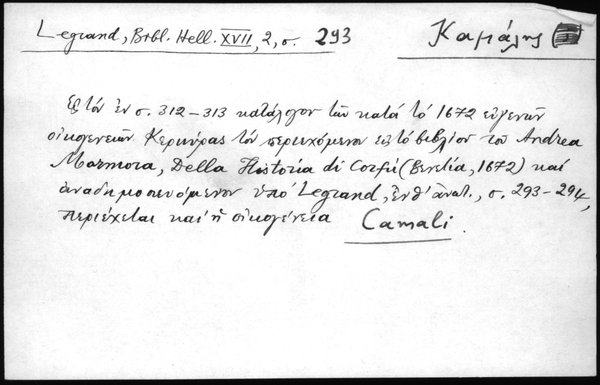 Legrand, Bibl. Hell. XVII, 2, σ. 293
Καμάλης
Εἰς τὸν ἐν σ. 312–313 κατάλογον τῶν κατὰ τὸ 1672 εὐγενῶν
οἰκογενειῶν Κερκύρας τὸν περιεχόμενον εἰς τὸ βιβλίον τοῦ Andrea
Marmora, Della Historia di Corfù (Βενετία, 1672) καὶ
ἀναδημοσιευόμενον ὑπὸ Legrand, ἔνθ' ἀνωτ., σ. 293–294,
περιέχεται καὶ ἡ οἰκογένεια Camali.